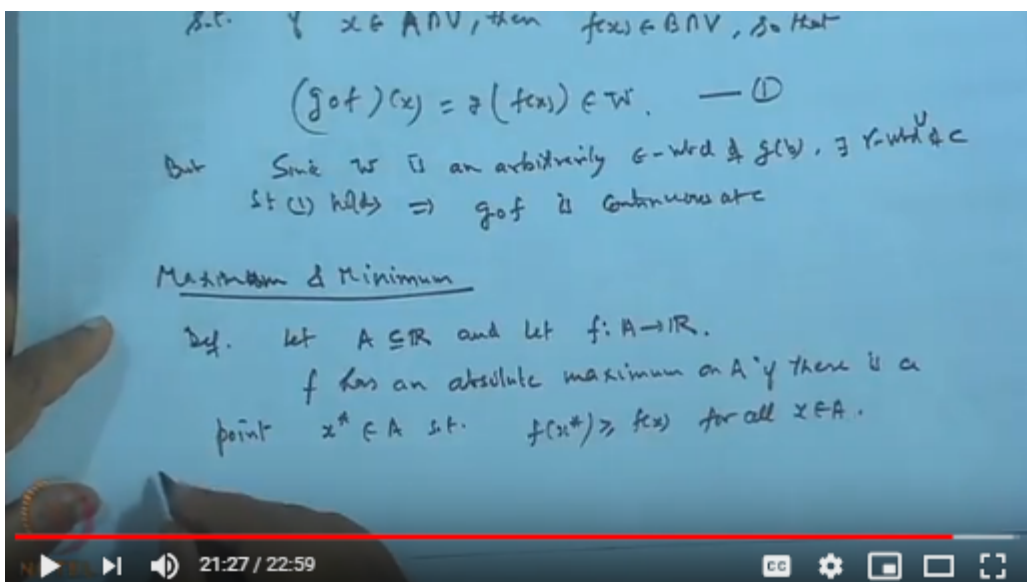 s.t. if x ∈ A∩V, then f(x) ∈ B∩V, so that
(gof)(x) = g(f(x)) ∈ W. — ①
But Since W is an arbitrarily ε-nbd of g(b), ∃ γ-nbd V of c
st (1) holds ⇒ gof is continuous at c
Maximum & Minimum
Def. Let A ⊆ ℝ and let f: A→ℝ.
f has an absolute maximum on A if there is a
point x* ∈ A s.t. f(x*) ≥ f(x) for all x ∈ A.
21:27 / 22:59
CC